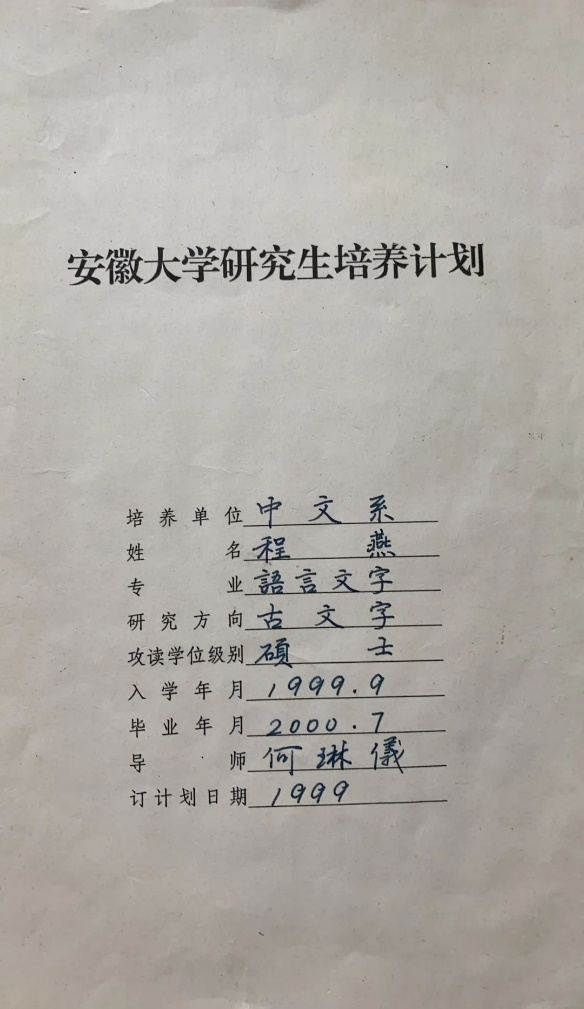 安徽大学研究生培养计划
培养单位 中文系
姓名 程燕
专业 語言文字
研究方向 古文字
攻读学位级别 碩士
入学年月 1999.9
毕业年月 2000.7
导师 何琳儀
订计划日期 1999